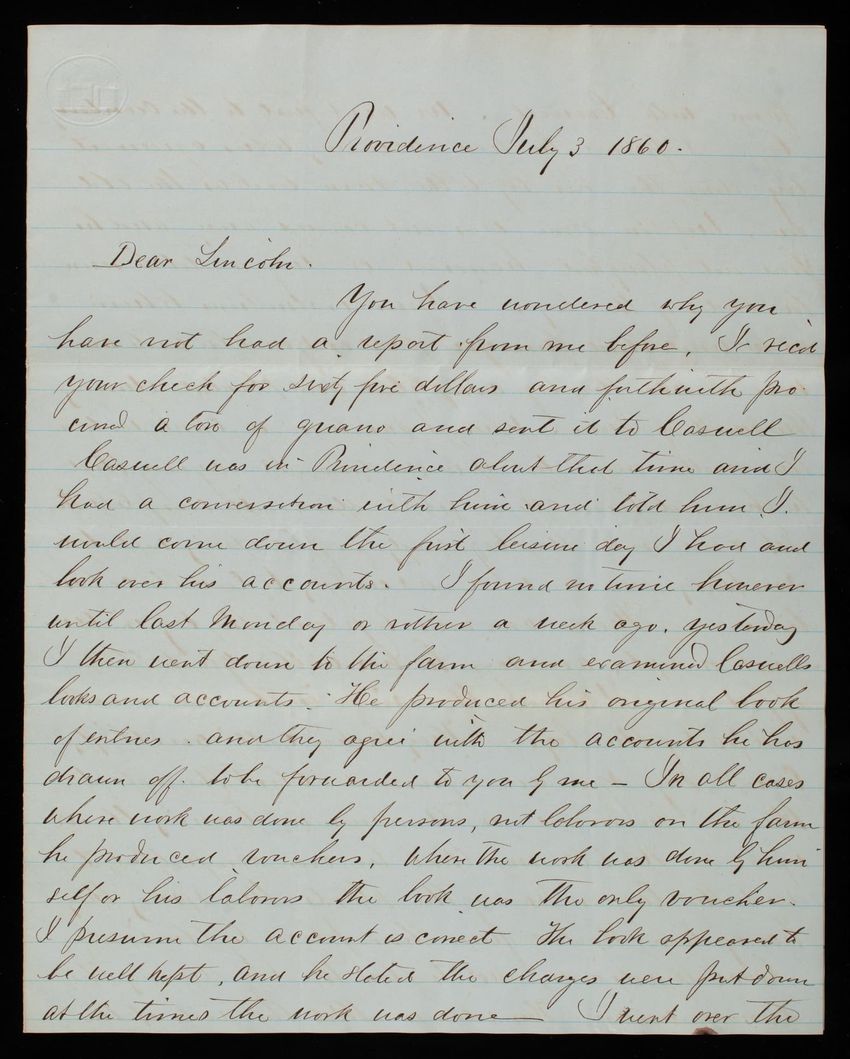 Providence July 3 1860.
Dear Lincoln.
You have wondered why you
have not had a report from me before, I rec'd
your check for sixty five dollars and forthwith pro
cured a ton of guano and sent it to Caswell
Caswell was in Providence about that time and I
had a conversation with him and told him I.
would come down the first leisure day I had and
look over his accounts. I found no time however
until last Monday or rather a week ago. yesterday
I then went down to the farm and examined Caswells
books and accounts. He produced his original book
of entries. and they agree with the accounts he has
drawn off. to be forwarded to you by me — In all cases
where work was done by persons, not laborors on the farm
he produced vouchers, where the work was done by him
self or his laborors the book was the only voucher.
I presume the account is correct The book appeared to
be well kept, and he stated the charges were put down
at the times the work was done — I went over the